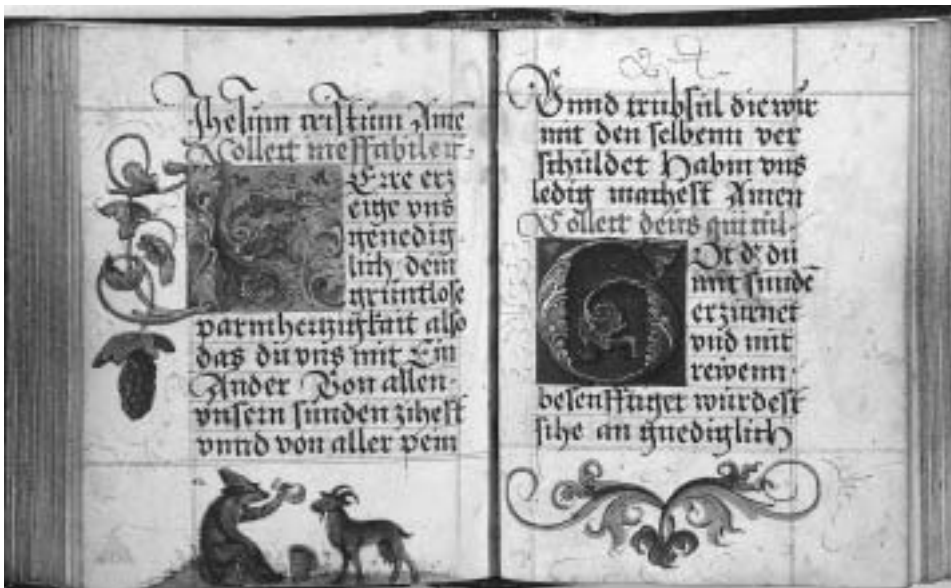 Jhesum cristum Ame
Collect ineffabilem
Erre erz
eige vns
genedig
lich dein
gruntlose
parmhertzigkait also
das du vns mit Ein
Ander Von allen
vnsern sunden zihest
vnnd von aller pein
Vnnd trübsül die wir
mit den selbenn ver
schuldet Habm vns
ledig machest Amen
Collect deus qui cul
Ot d' du
mit sunde
erzürnet
vnd mit
reiwenn
besenfftiget würdest
sihe an gnediglich